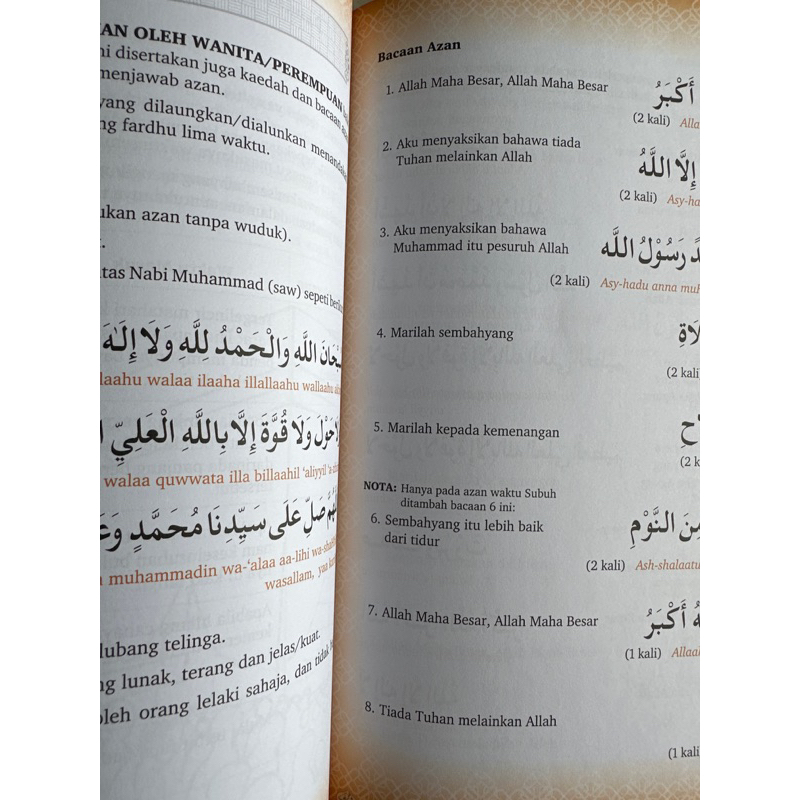 AN OLEH WANITA/PEREMPUAN
ni disertakan juga kaedah dan bacaan
menjawab azan.
yang dilaungkan/dialunkan
ng fardhu lima waktu.
ukan azan tanpa wuduk).
tas Nabi Muhammad (saw) sepeti
اللَّهِ وَالْحَمْدُ لِلَّهِ وَلَا إِلَهَ
laahu walaa ilaaha illallaahu wallaahu
حَوْلَ وَلَا قُوَّةَ إِلَّا بِاللَّهِ الْعَلِيِّ
walaa quwwata illa billaahil 'aliyyil
صَلِّ عَلَى سَيِّدِنَا مُحَمَّدٍ وَعَ
muhammadin wa-'alaa aa-lihi
wasallam,
lubang telinga.
ng lunak, terang dan jelas/kuat.
oleh orang lelaki sahaja, dan
Bacaan Azan
1. Allah Maha Besar, Allah Maha Besar
أَكْبَرُ
(2 kali) Alla
2. Aku menyaksikan bahawa tiada
Tuhan melainkan Allah
إِلَّا اللَّهُ
(2 kali) Asy-ha
3. Aku menyaksikan bahawa
Muhammad itu pesuruh Allah
دٌ رَسُوْلُ اللَّه
(2 kali) Asy-hadu anna muh
4. Marilah sembahyang
لَاةِ
(2 kali
5. Marilah kepada kemenangan
(2 k
NOTA: Hanya pada azan waktu Subuh
ditambah bacaan 6 ini:
6. Sembahyang itu lebih baik
dari tidur
مِنَ النَّوْمِ
(2 kali) Ash-shalaatu
7. Allah Maha Besar, Allah Maha Besar
هُ أَكْبَرُ
(1 kali) Allaa
8. Tiada Tuhan melainkan Allah
(1 kali